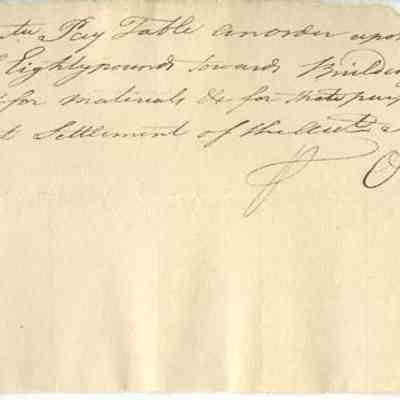 Pay Table an order upon
Eighty pounds towards Building
for materials &c for that purp
t Settlement of the Acct